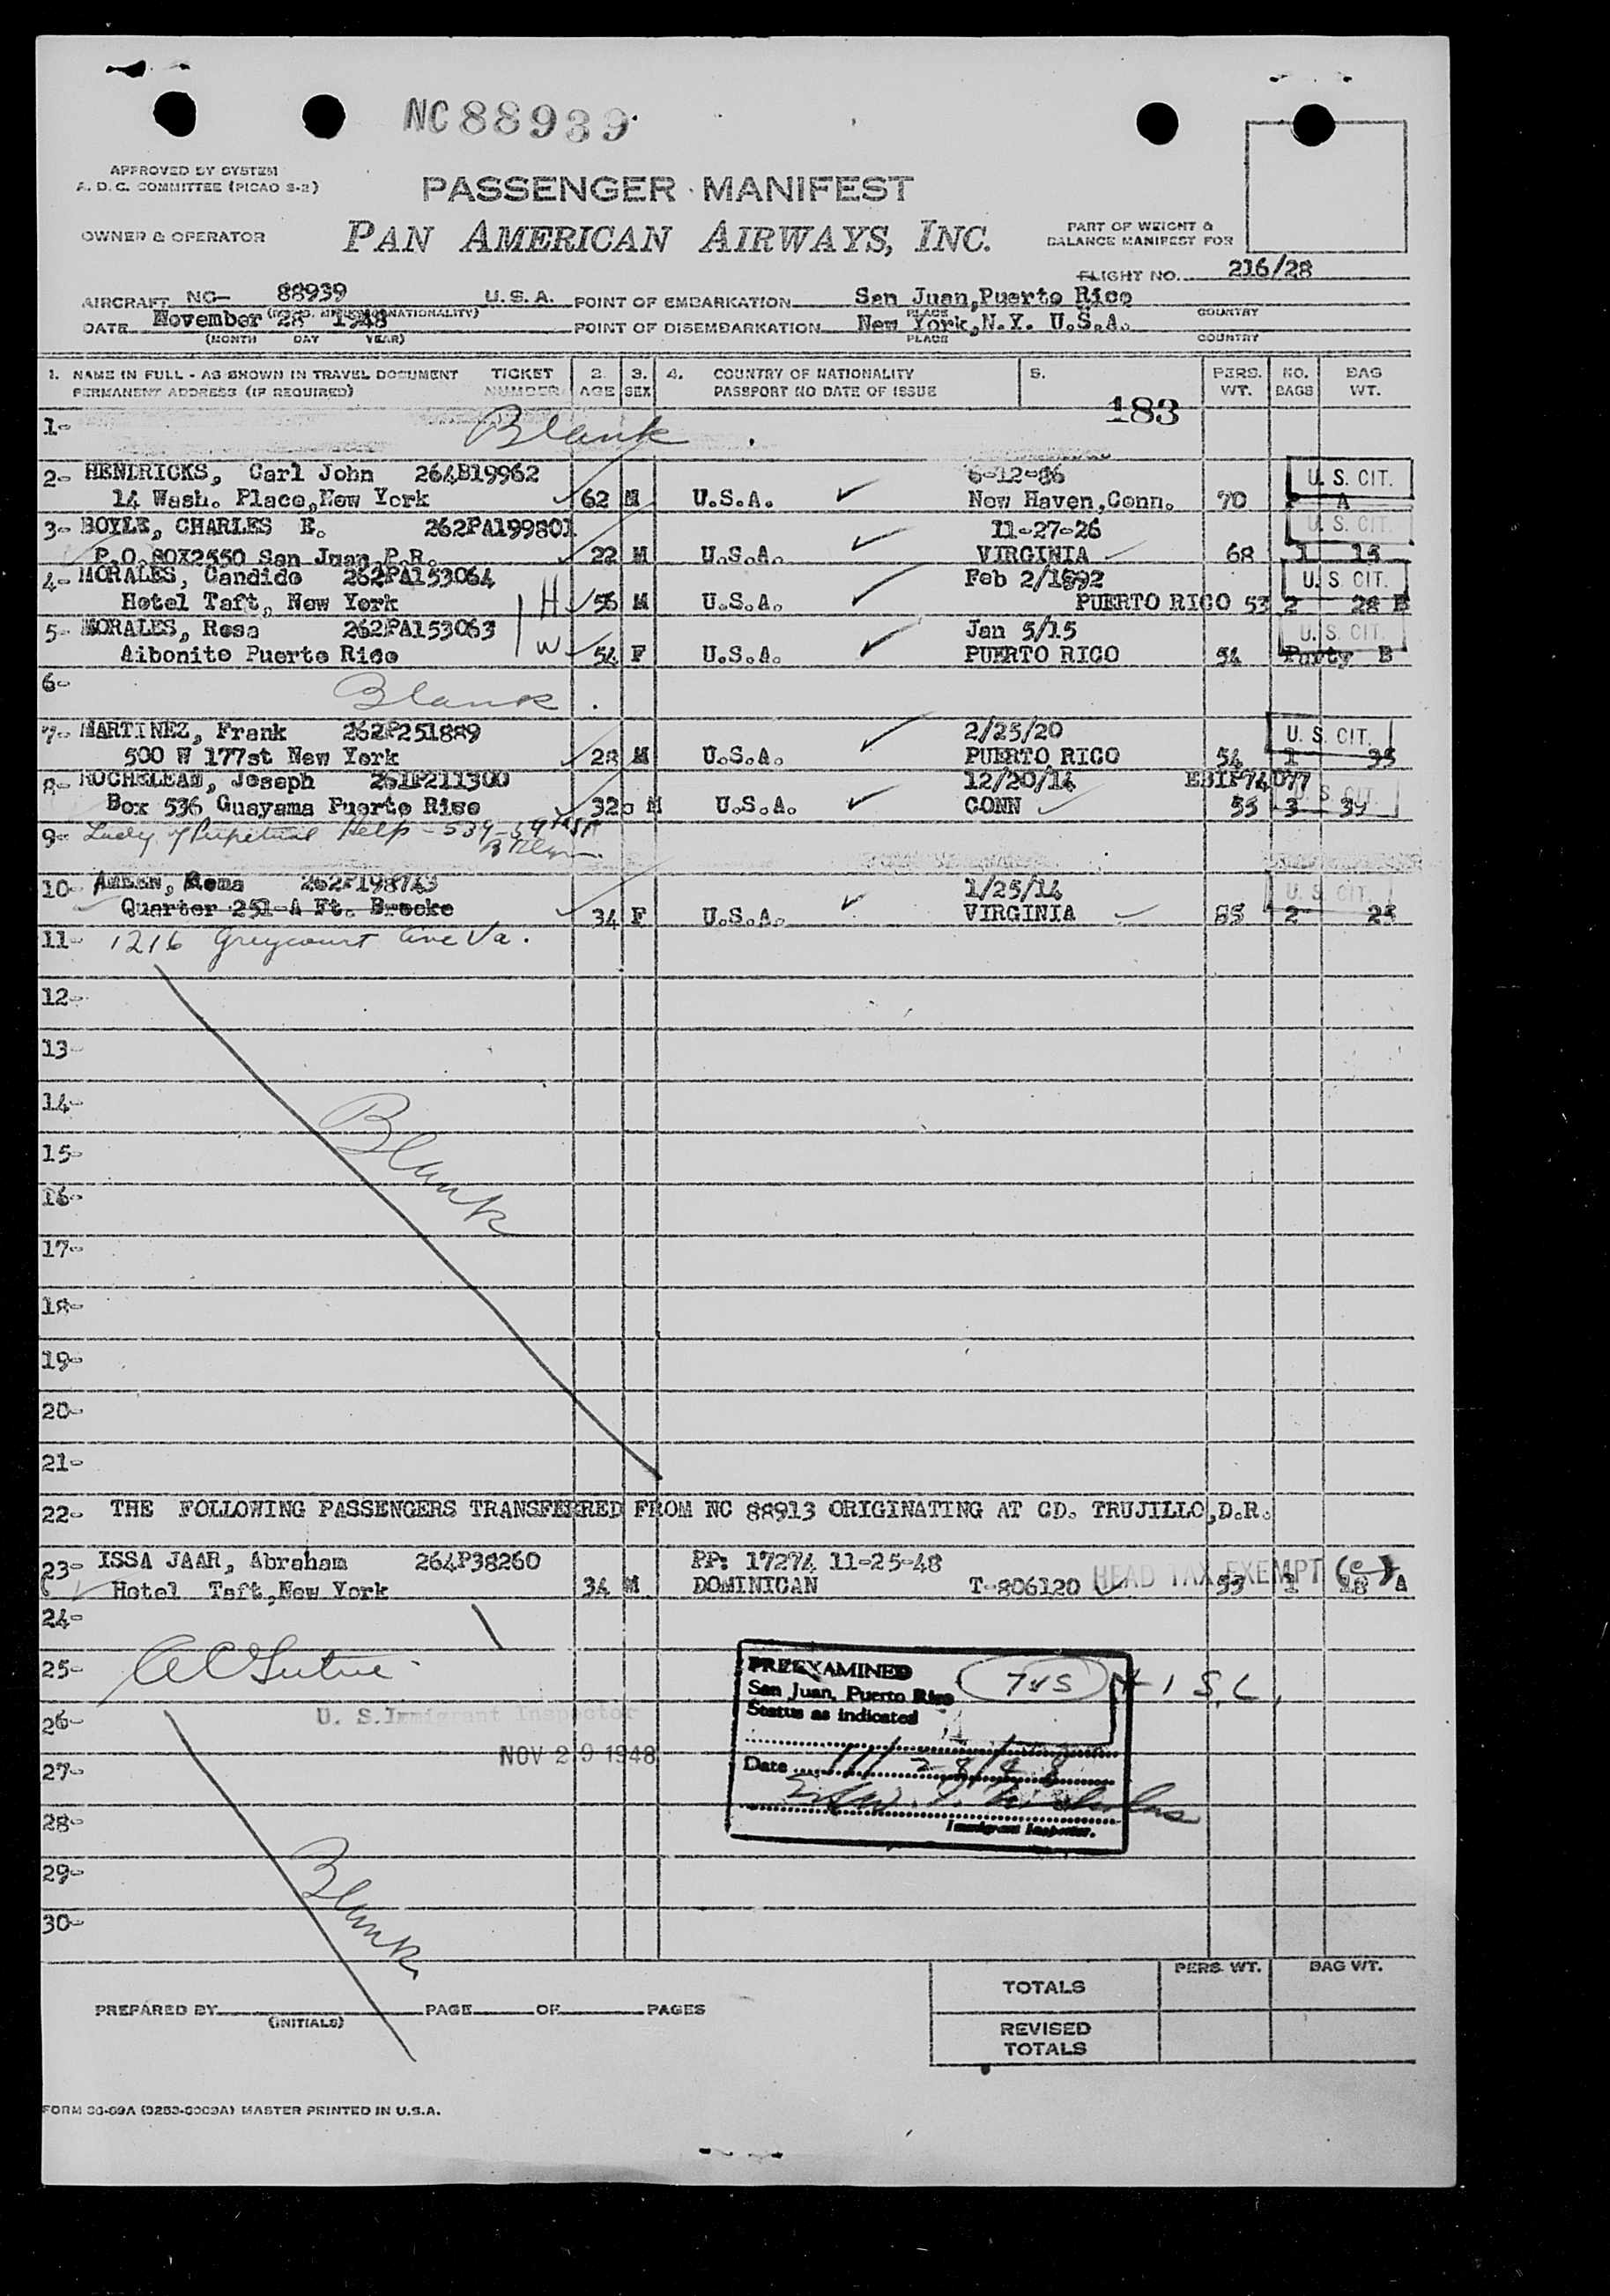 NC88939
APPROVED BY SYSTEM
A. D. C. COMMITTEE (PICAO S-2)
PASSENGER MANIFEST
OWNER & OPERATOR
PAN AMERICAN AIRWAYS, INC.
PART OF WEIGHT &
BALANCE MANIFEST FOR
FLIGHT NO. 216/28
AIRCRAFT NC- 88939 U.S.A. POINT OF EMBARKATION San Juan,Puerto Rico
PLACE COUNTRY
DATE November 28 1948 POINT OF DISEMBARKATION New York,N.Y. U.S.A.
(MONTH DAY YEAR) PLACE COUNTRY
1. NAME IN FULL - AS SHOWN IN TRAVEL DOCUMENT TICKET 2. 3. 4. COUNTRY OF NATIONALITY 5. PERS. NO. BAG
PERMANENT ADDRESS (IF REQUIRED) NUMBER AGE SEX PASSPORT NO DATE OF ISSUE WT. BAGS WT.
183
1- Blank
2- HENDRICKS, Carl John 264B19962 6-12-86 U.S. CIT.
14 Wash. Place,New York 62 M U.S.A. New Haven,Conn. 70 P A
3- BOYLE, CHARLES E. 262PA199801 11-27-26 U.S. CIT.
P.O.BOX2550 San Juan,P.R. 22 M U.S.A. VIRGINIA 68 1 15
4- MORALES, Candido 262PA153064 Feb 2/1892 U.S. CIT.
Hotel Taft, New York H 56 M U.S.A. PUERTO RICO 53 2 28 B
5- MORALES, Rosa 262PA153063 Jan 5/15 U.S. CIT.
Aibonito Puerto Rico W 54 F U.S.A. PUERTO RICO 54 Party B
6- Blank
7- MARTINEZ, Frank 262P251889 2/25/20 U.S. CIT.
500 W 177st New York 28 M U.S.A. PUERTO RICO 54 1 35
8- ROCHELEAU, Joseph 261P211300 12/20/14 EBIF74077 U.S. CIT.
Box 536 Guayama Puerto Rico 32 M U.S.A. CONN 55 3 39
9- Lady of Perpetual Help - 539-59 St
Bklyn
10- AMEEN, Rema 262P198743 1/25/14 U.S. CIT.
Quarter 251-A Ft. Brooke 34 F U.S.A. VIRGINIA 2 25
11- 1216 Greycourt Ave Va.
12-
13-
14-
Blank
15-
16-
17-
18-
19-
20-
21-
22- THE FOLLOWING PASSENGERS TRANSFERRED FROM NC 88913 ORIGINATING AT CD. TRUJILLO,D.R.
23- ISSA JAAR, Abraham 264P38260 PP: 17274 11-25-48 HEAD TAX EXEMPT (e)
Hotel Taft,New York 34 M DOMINICAN T-806120 53 1 18 A
24-
25-
PREEXAMINED
San Juan, Puerto Rico
Status as indicated
7 US + 1 S.L.
26- U. S. Immigrant Inspector
NOV 29 1948
27-
Date 11/28/48
Immigrant Inspector.
28-
29-
Blank
30-
PERS. WT. BAG WT.
TOTALS
PREPARED BY PAGE OF PAGES
(INITIALS)
REVISED
TOTALS
FORM 36-09A (0253-0009A) MASTER PRINTED IN U.S.A.